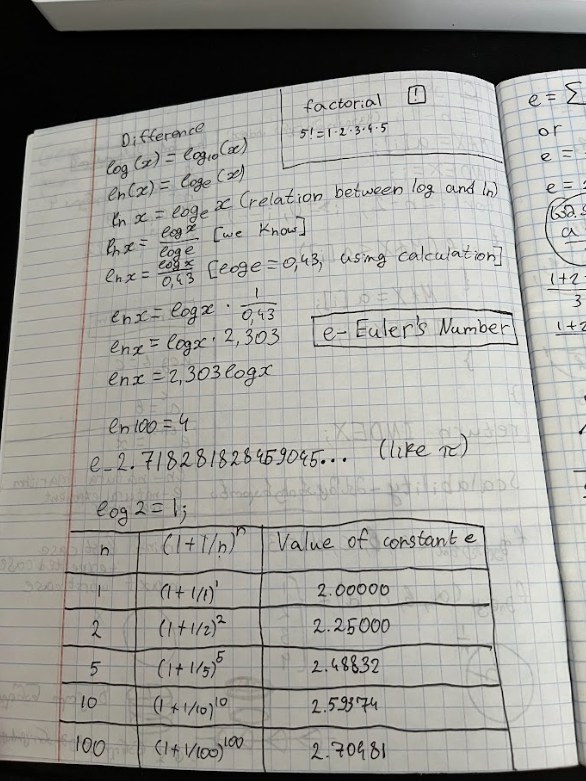 Difference
log(x) = log₁₀(x)
ln(x) = logₑ(x)
ln x = logₑ x (relation between log and ln)
ln x = logx / loge [we know]
ln x = logx / 0,43 [loge = 0,43, using calculation]
ln x = logx · 1 / 0,43
ln x = logx · 2,303
ln x = 2,303 logx
ln 100 = 4
e – 2.718281828459045... (like π)
log 2 = 1;
factorial !
5! = 1·2·3·4·5
e – Euler's Number
n (1+1/n)ⁿ Value of constant e
1 (1+1/1)¹ 2.00000
2 (1+1/2)² 2.25000
5 (1+1/5)⁵ 2.48832
10 (1+1/10)¹⁰ 2.59374
100 (1+1/100)¹⁰⁰ 2.70481
e = Σ
or
e =
e =
a
1+2
3
1+2